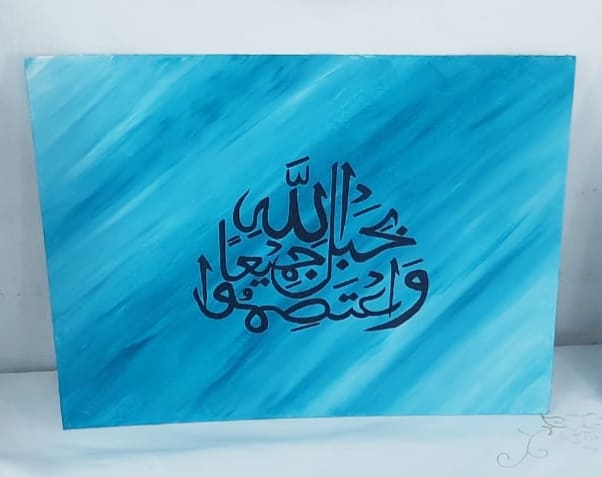 وَاعْتَصِمُوا
بِحَبْلِ اللَّهِ
جَمِيعًا